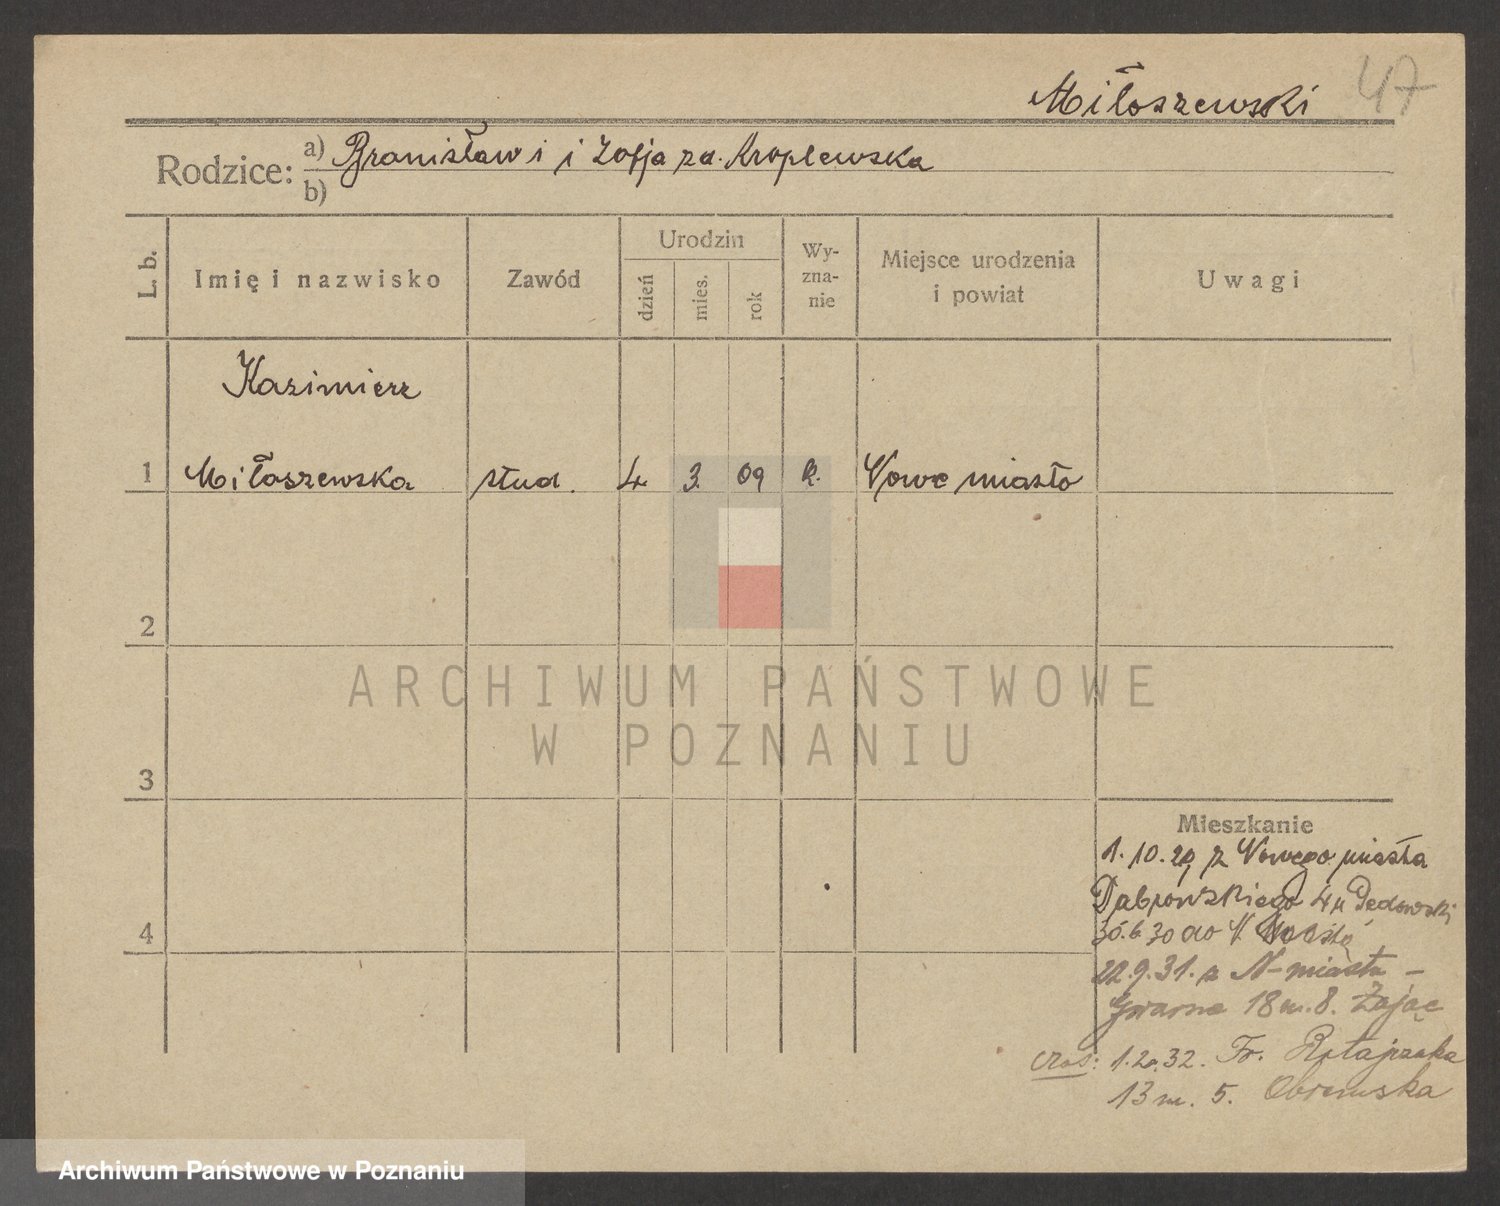 Miłoszewski 47
Rodzice: a) Bronisław i i Zofja za. Kroplewska
b)
L. b.
Imię i nazwisko
Zawód
Urodzin
dzień
mies.
rok
Wy-
zna-
nie
Miejsce urodzenia
i powiat
Uwagi
Kazimierz
1 Miłoszewska stud. 4 3. 09 k. Nowe miasto
2
ARCHIWUM PAŃSTWOWE
W POZNANIU
3
Mieszkanie
1.10.29 z Nowego miasta
4
Dąbrowskiego 4
30.6.30 do N.
22.9.31. z N-miasta –
Gwarna 18 m. 8. Zając
czas: 1.2.32. Fr. Ratajczaka
13 m. 5.
Archiwum Państwowe w Poznaniu